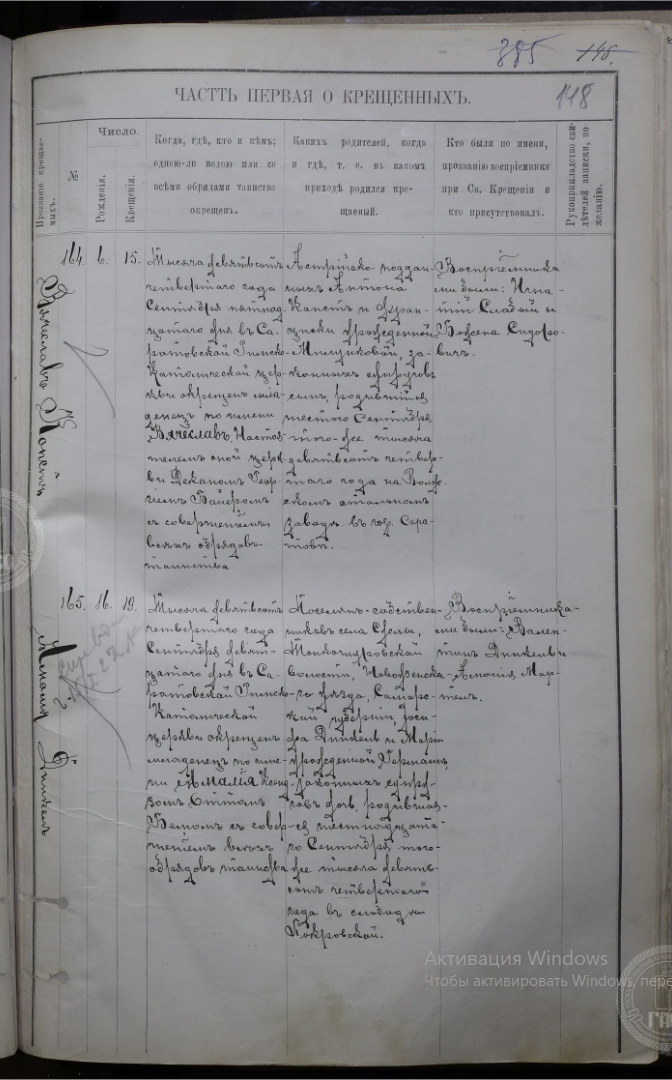 385 148.
148
ЧАСТЬ ПЕРВАЯ О КРЕЩЕННЫХЪ.
Прозваніе крещае-
мыхъ.
№
Число.
Рожденія.
Крещенія.
Когда, гдѣ, кто и кѣмъ;
одною-ли водою или со
всѣми обрядами таинства
окрещенъ.
Какихъ родителей, когда
и гдѣ, т. е. въ какомъ
приходѣ родился кре-
щаемый.
Кто были по имени,
прозванію воспріемники
при Св. Крещеніи и
кто присутствовалъ.
Рукоприкладство сви-
дѣтелей записки, по
желанію.
Вячеславъ
164.
6.
15.
Тысяча девятьсотъ
четвертаго года
Сентября пятнад-
цатаго дня въ Са-
ратовской Римско-
Католической цер-
кви окрещенъ мла-
денецъ по имени
Вячеславъ, Настоя-
телемъ оной церк-
ви Деканомъ Геор-
гіемъ Байеромъ
съ совершеніемъ
всѣхъ обрядовъ
таинства
Австрійско-поддан-
ныхъ Антона
и Фран-
циски урожденной
за-
конныхъ супруговъ
сынъ, родившійся
шестого Сентября
того-же тысяча
девятьсотъ четвер-
таго года на Волж-
скомъ стальномъ
заводѣ въ гор. Сара-
товѣ.
Воспріемника-
ми были: Игна-
тій Сладый и
Божена Сидоро-
вичъ.
Амалія Динкель
165.
16.
19.
Тысяча девятьсотъ
четвертаго года
Сентября девят-
цатаго дня въ Са-
ратовской Римско-
Католической
церкви окрещенъ
младенецъ по име-
ни Амалія Ксенд-
зомъ Оттомъ
Бемомъ съ совер-
шеніемъ всѣхъ
обрядовъ таинства
Поселянъ-собствен-
никовъ села
волости, Новоузенска-
го уѣзда, Самарс-
кой губерніи, Іоси-
фа Динкель и Маріи
урожденной Германъ,
законныхъ супру-
говъ дочь, родившая-
ся шестнадцата-
го Сентября того-
же тысяча девять-
сотъ четвертаго
года въ слободѣ
Покровской.
Воспріемника-
ми были: Вален-
тинъ Динкель и
Антонія Мар-
тель.
Активация Windows
Чтобы активировать Windows, пере